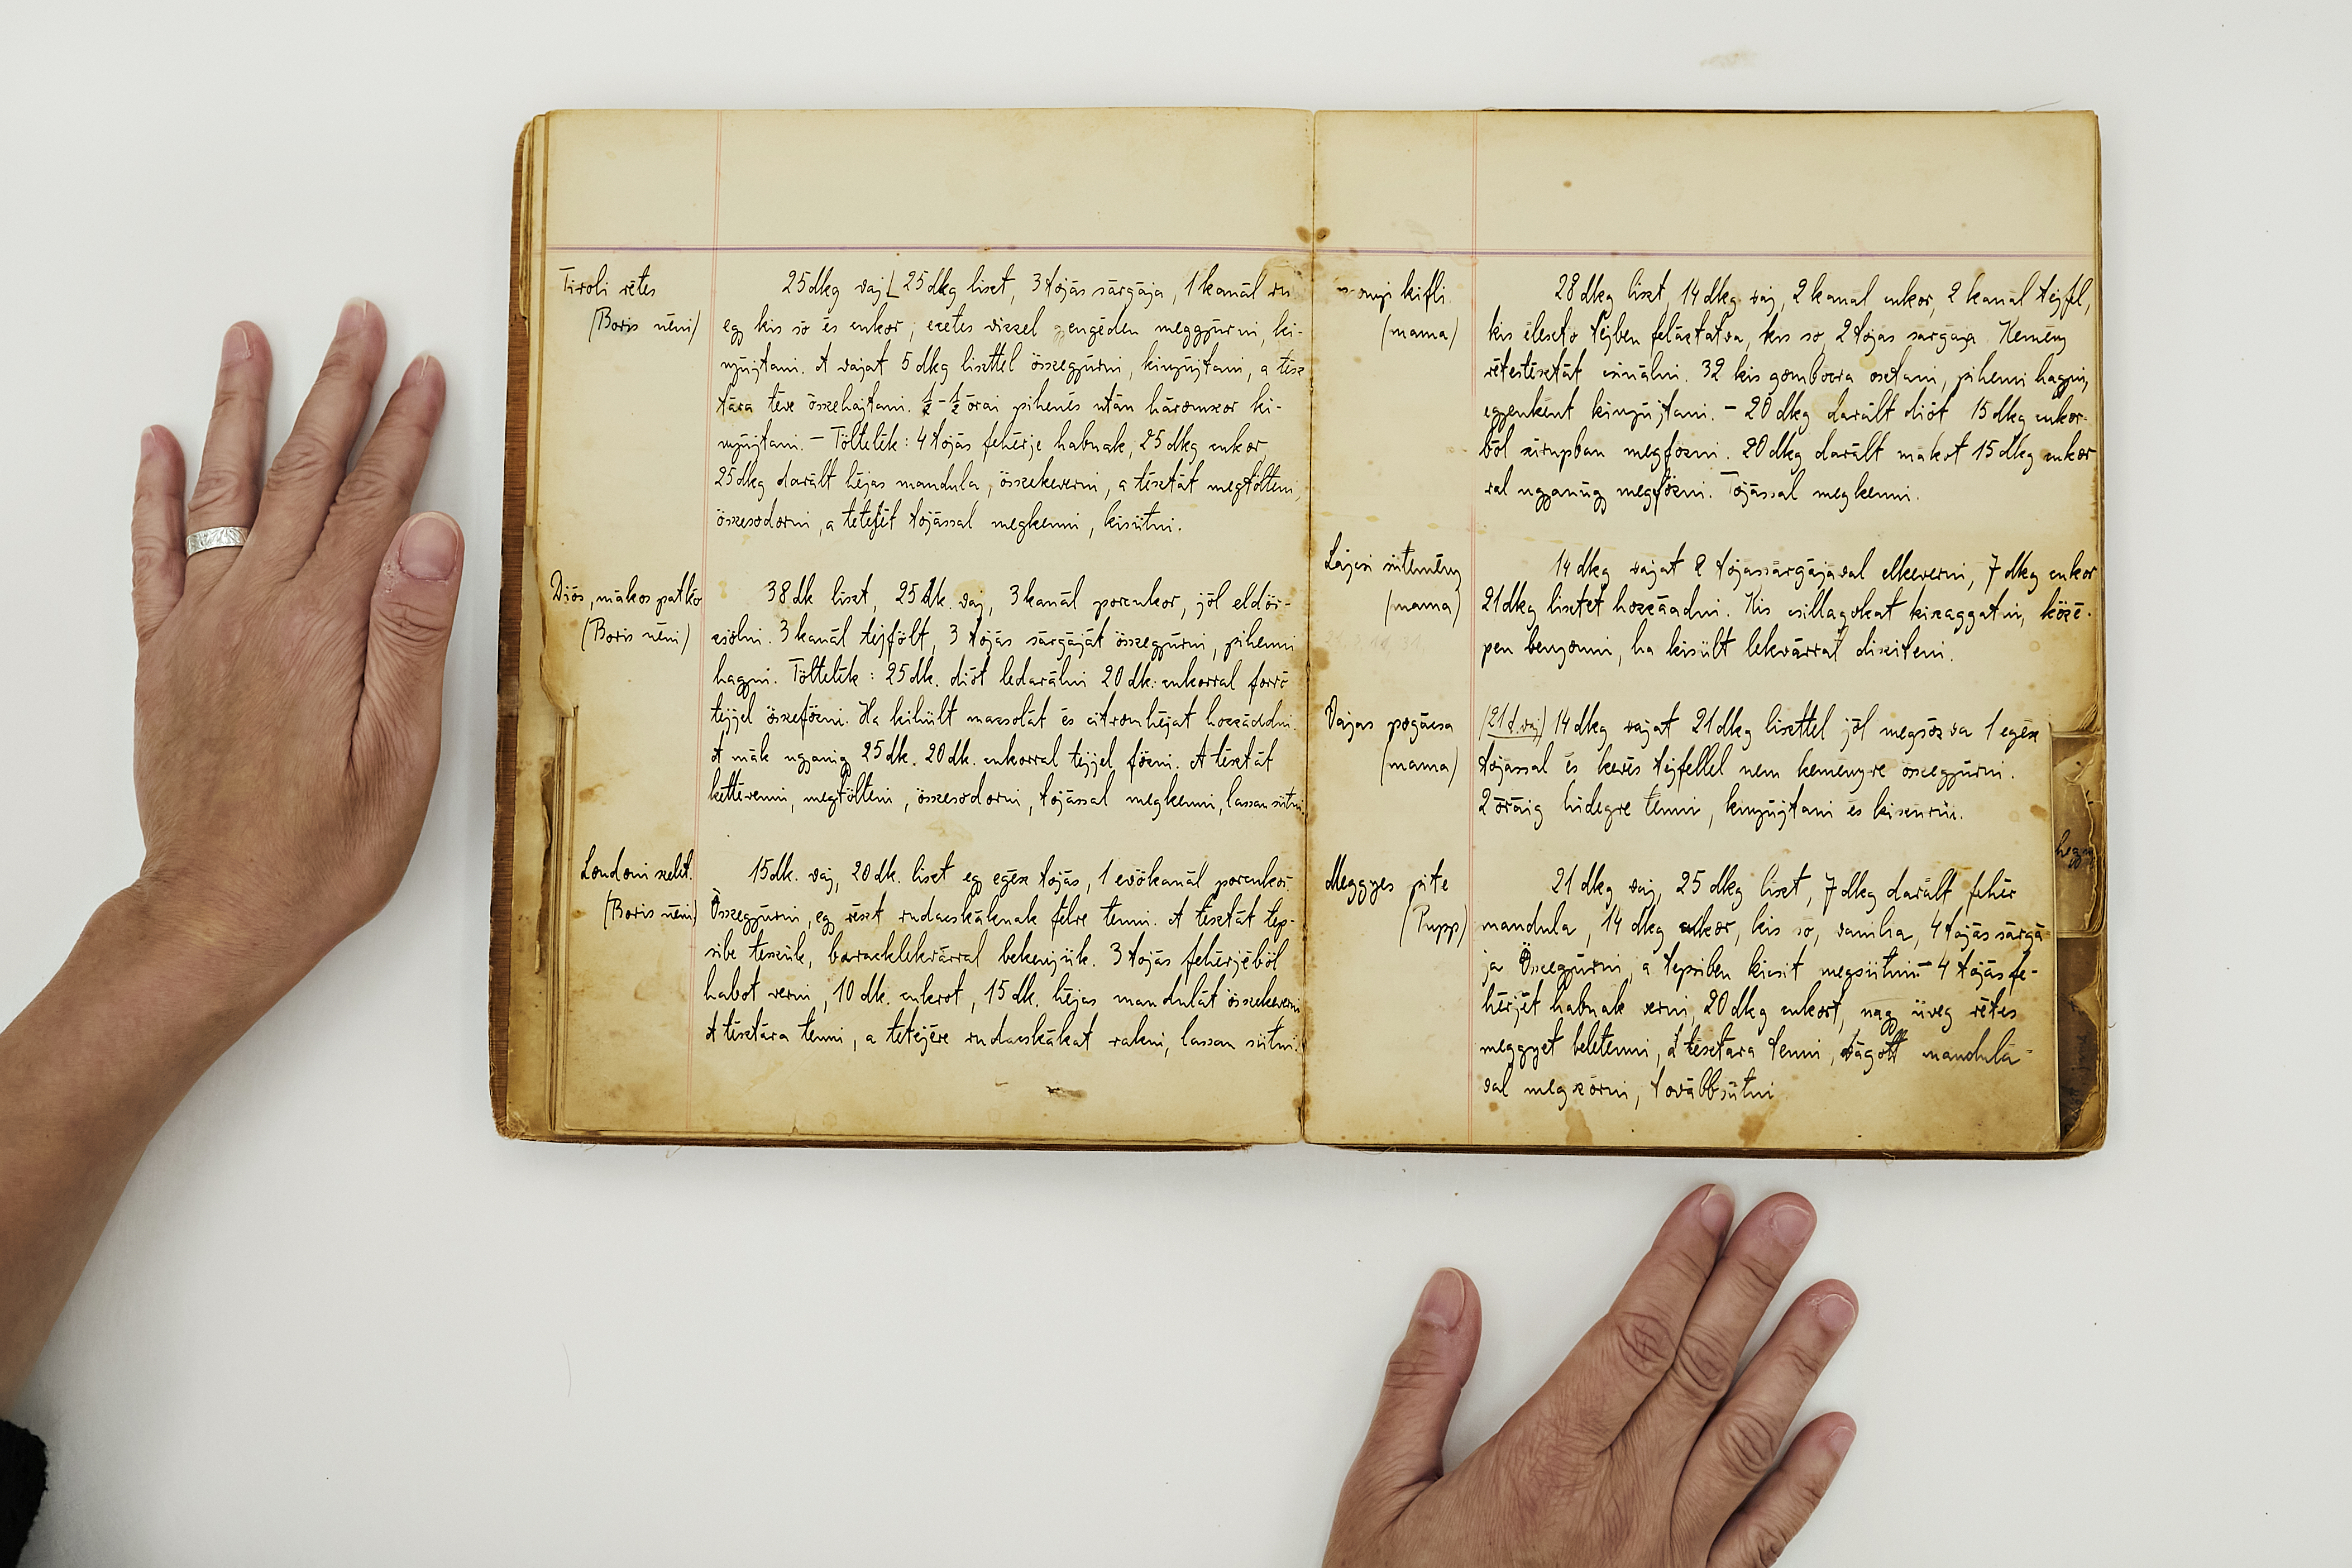 Tiroli rétes
(Boris néni)
25dkg vaj [25dkg liszt, 3 tojás sárgája, 1 kanál
egy kis só és cukor, ecetes vizzel gyengéden meggyúrni, ki-
nyújtani. A vajat 5 dkg liszttel összegyúrni, kinyújtani, a tész
tára téve összehajtani. ½-½ órai pihenés után háromszor ki-
nyújtani. - Töltelék: 4 tojás fehérje habnak, 25 dkg cukor,
25 dkg darált héjas mandula, összekeverni, a tésztát megtölteni,
összesodorni, a tetejét tojással megkenni, kisütni.
Diós, mákos patkó
(Boris néni)
38 dk liszt, 25 dk. vaj, 3 kanál porcukor, jól eldör-
zsölni. 3 kanál tejfölt, 3 tojás sárgáját összegyúrni, pihenni
hagyni. Töltelék: 25 dk. diót ledarálni 20 dk. cukorral forró
tejjel összefőzni. Ha kihült mazsolát és citromhéjat hozzáadni.
A mák ugyanig 25 dk. 20 dk. cukorral tejjel főzni. A tésztát
kettévenni, megtölteni, összesodorni, tojással megkenni, lassan sütni
Londoni szelit.
(Boris néni)
15 dk. vaj, 20 dk. liszt egy egész tojás, 1 evőkanál porcukor.
Összegyúrni, egy részt rudacskáknak félre tenni. A tésztát tep-
sibe teszük, baracklekvárral bekenjük. 3 tojás fehérjéből
habot verni, 10 dk. cukrot, 15 dk. héjas mandulát összekeverni
A tésztára tenni, a tetejére rudacskákat rakni, lassan sütni.
kifli
(mama)
28 dkg liszt, 14 dkg. vaj, 2 kanál cukor, 2 kanál tejfel,
kis élesztő tejben feláztatva, kis só, 2 tojás sárgája. Kemény
rétestésztát csinálni. 32 kis gombócra osztani, pihenni hagyni,
egyenként kinyújtani. - 20 dkg darált diót 15 dkg cukor-
ból szirupban megfőzni. 20 dkg darált mákot 15 dkg cukor
ral ugyanúgy megfőzni. Tojással megkenni.
Lágesi sütemény
(mama)
14 dkg vajat 2 tojássárgájával elkeverni, 7 dkg cukor
21 dkg lisztet hozzáadni. Kis csillagokat kiszaggatni, közé-
pen benyomni, ha kisült lekvárral disziteni.
Vajas pogácsa
(mama)
(21 d. vaj) 14 dkg vajat 21 dkg liszttel jól megsózva 1 egész
tojással és kevés tejfellel nem keményre összegyúrni.
2 óráig hidegre tenni, kinyújtani és kiszúrni.
Meggyes pite
(Rupp)
21 dkg vaj, 25 dkg liszt, 7 dkg darált fehér
mandula, 14 dkg cukor, kis só, vanilia, 4 tojás sárgá
ja Összegyúrni, a tepsiben kicsit megsütnni - 4 tojás fe-
hérjét habnak verni, 20 dkg cukort, nagy üveg rétes
meggyet beletenni, a tésztára tenni, vágott mandulá-
val megszórni, továbbsütni